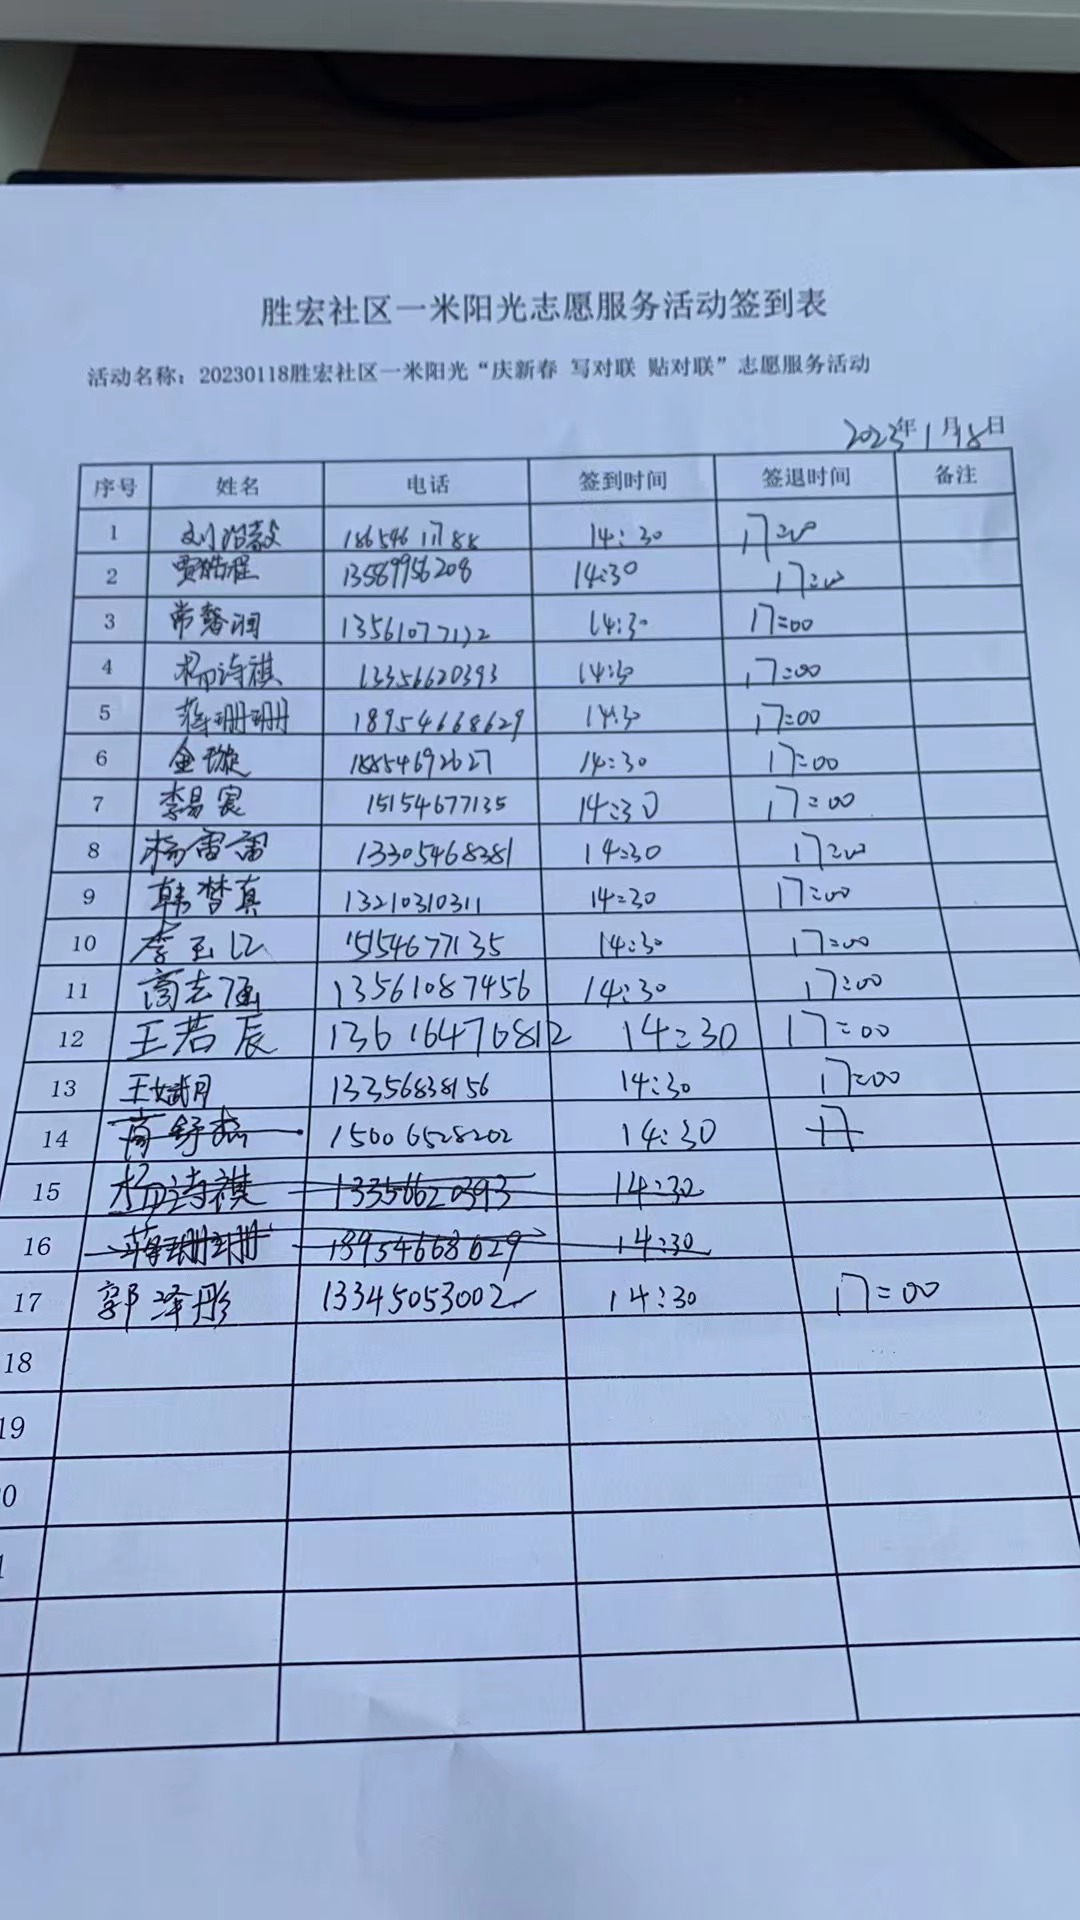 胜宏社区一米阳光志愿服务活动签到表
活动名称：20230118胜宏社区一米阳光“庆新春 写对联 贴对联”志愿服务活动
2023年1月18日
序号 姓名 电话 签到时间 签退时间 备注
1 14:30 17:00
2 13589956208 14:30 17:00
3 常馨润 14:30 17:00
4 杨诗祺 13356620393 14:30 17:00
5 蒋珊珊 18954668629 14:30 17:00
6 金璇 18854692627 14:30 17:00
7 李易宸 15154677135 14:30 17:00
8 杨雷雷 13305468381 14:30 17:00
9 韩梦真 13210310311 14:30 17:00
10 李玉江 15154677135 14:30 17:00
11 高志涵 13561087456 14:30 17:00
12 王若辰 13616476812 14:30 17:00
13 王斌月 13356838156 14:30 17:00
14 15006528202 14:30
15 杨诗祺 13356620393 14:30
16 蒋珊珊 18954668629 14:30
17 郭泽彤 13345053002 14:30 17:00
18
19